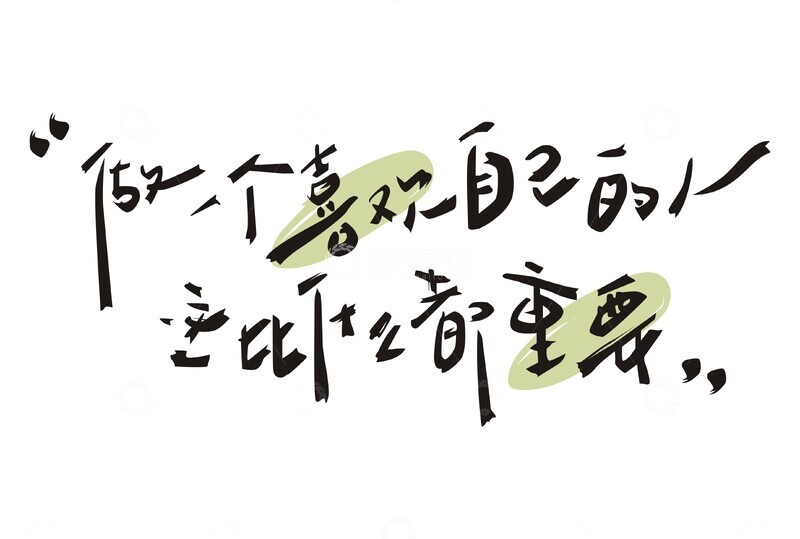 “做一个喜欢自己的人
它比什么都重要”